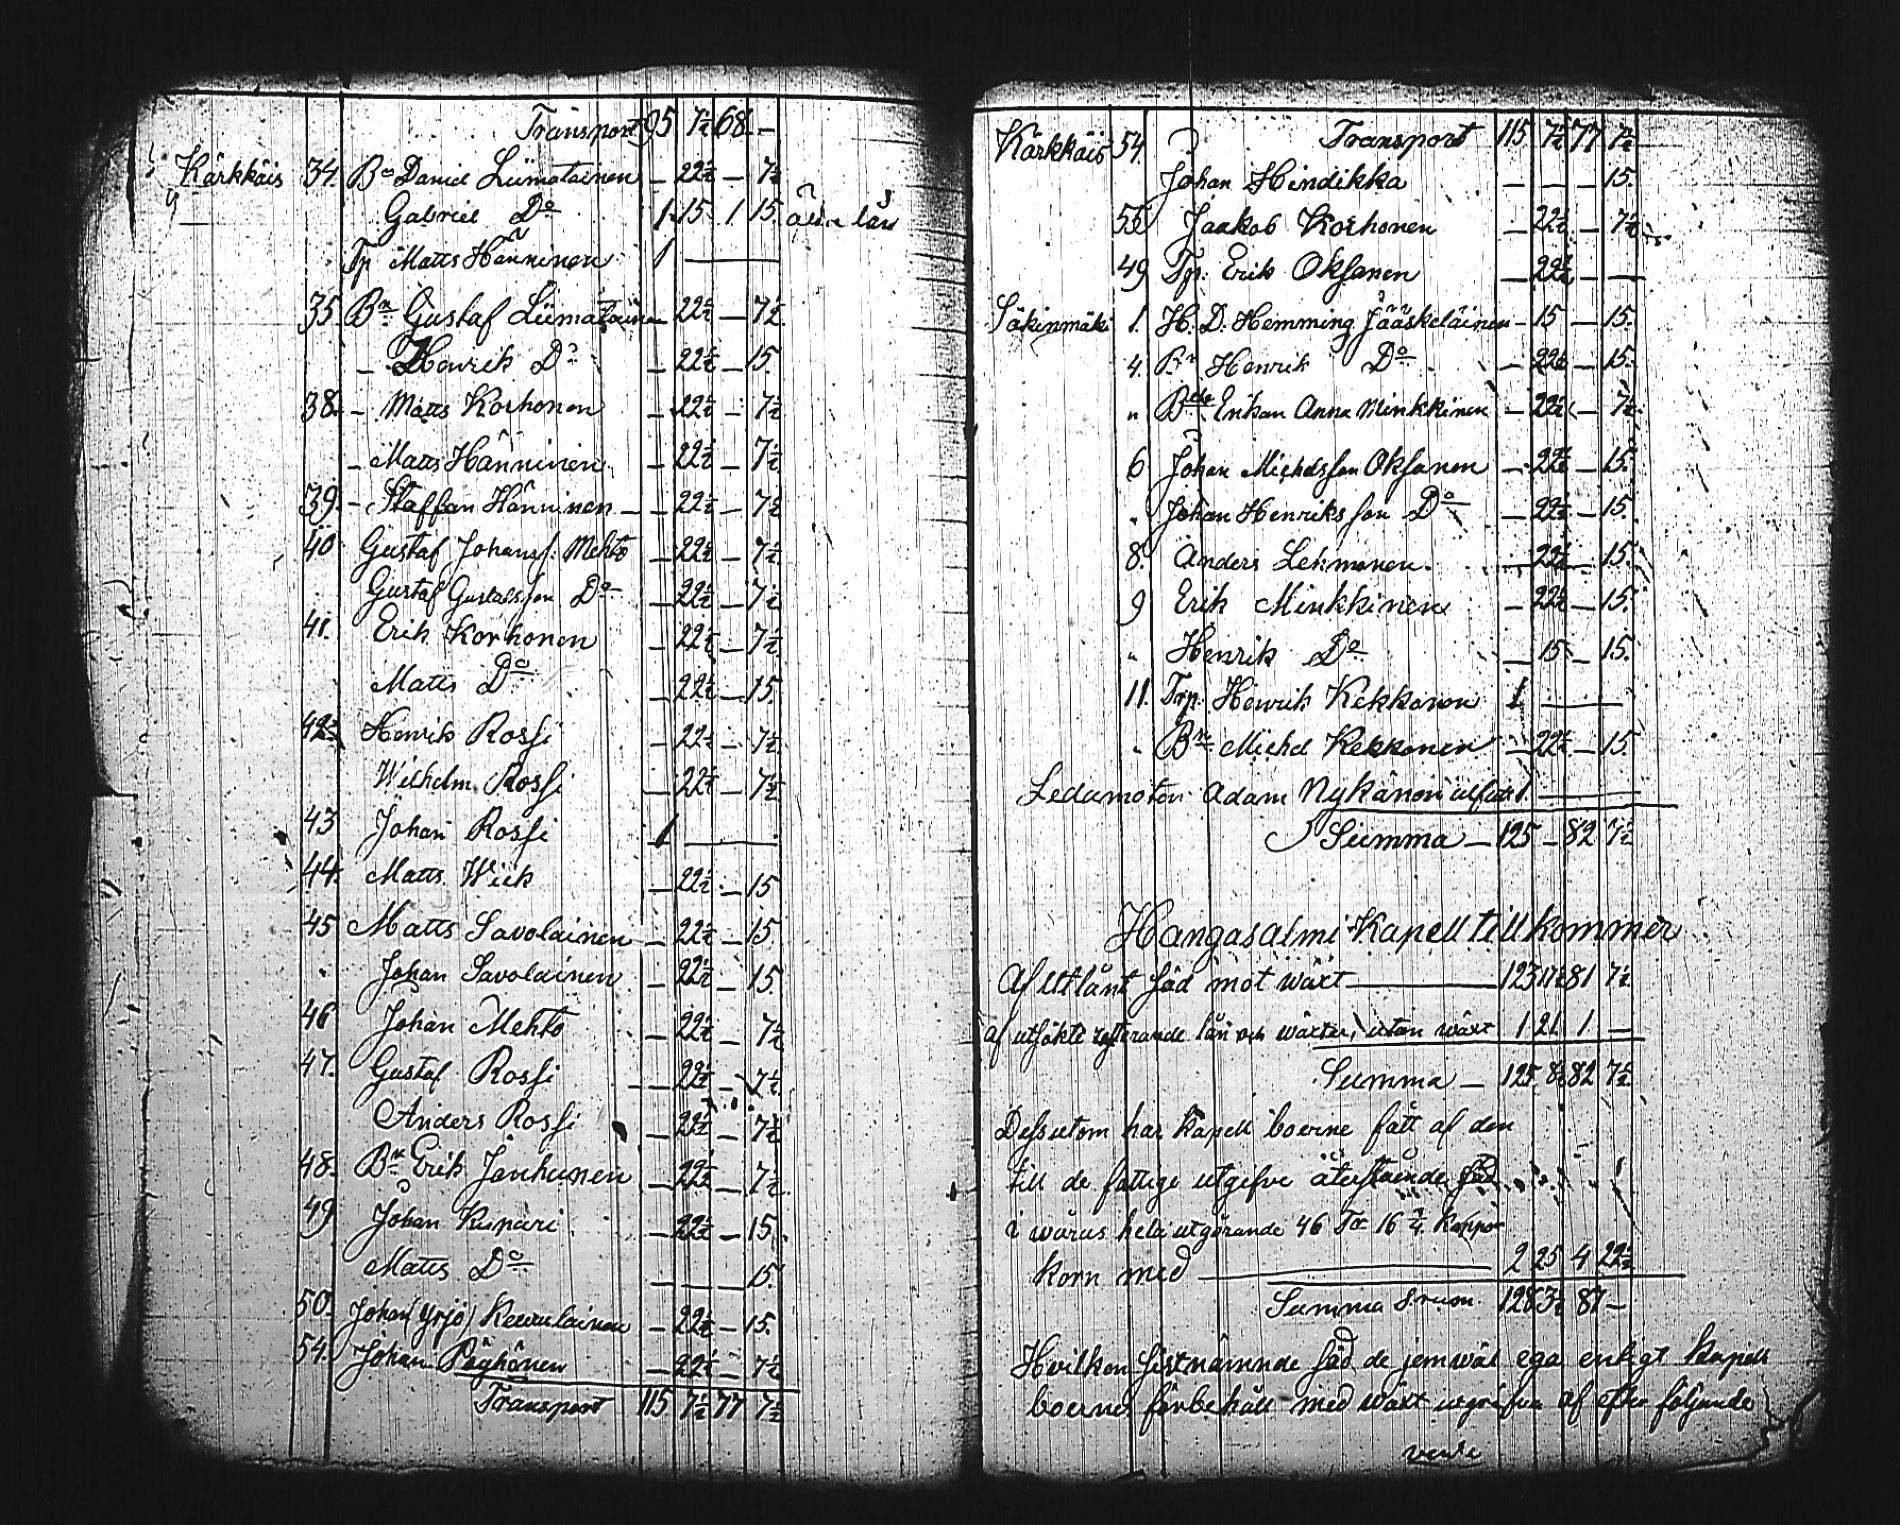 Transport 95 7½ 68 —
Kärkkäis 34. Bn Daniel Liimatainen — 22½ — 7½
Gabriel Do 1 15 1 15 lån
Tp Matts Hänninen 1 —
35. Bn Gustaf Liimatainen 22½ — 7½
— Henrik Do — 22½ — 15
38. — Matts Korhonen — 22½ — 7½
— Matts Hänninen — 22½ — 7½
39. — Staffan Hänninen — 22½ — 7½
40 Gustaf Johansf: Mehto — 22½ — 7½
Gustaf Gustafsson Do — 22½ — 7½
41. Erik Korhonen — 22½ — 7½
Matts Do — 22½ — 15.
42. Henrik Rossi — 22½ — 7½
Wilhelm Rossi — 22½ — 7½
43 Johan Rossi 1 —
44. Matts Wick — 22½ — 15
45 Matts Savolainen — 22½ — 15
Johan Savolainen — 22½ — 15
46 Johan Mehto — 22½ 7½
47. Gustaf Rossi — 22½ — 7½
Anders Rossi — 22½ — 7½
48. Bn Erik Janhunen — 22½ — 7½
49 Johan Kupari — 22½ — 15
Matts Do — — — 15
50. Johan (Yrjö) Keurulainen — 22½ — 15.
54. Johan Pöyhönen — 22½ — 7½
Transport 115 7½ 77 7½
Kärkkäis 54. Transport 115 7½ 77 7½
Johan Hindikka — — — 15.
55 Jaakob Korhonen — 22½ — 7½
49 Tp. Erik Oksanen — 22½ — —
Säkinmäki 1. H. D. Hemming Jääskeläinen — 15 — 15.
4. Bn Henrik Do — 22½ — 15.
" Bde Enkan Anna Minkkinen — 22½ — 7½
6 Johan Michelsson Oksanen — 22½ — 15
" Johan Henriksson Do — 22½ — 15.
8. Anders Lehmonen. — 22½ — 15.
9 Erik Minkkinen — 22½ — 15.
" Henrik Do — 15 — 15.
11. Trp. Henrik Kekkonen 1 —
" Bn Michel Kekkonen — 22½ — 15
Ledamoten Adam Nykänen 1 —
Summa — 125 — 82 7½
Hangasalmi Kapell tillkommer
Af utlånt säd mot wäxt — 123 81 7½
af utsökte lån och wäxter, utan wäxt 1 21 1 —
Summa — 125 8½ 82 7½
Dessutom har kapell boerne fått af den
till de fattige utgifne återstående säd
i warus hela utgörande 46 Tr 16 Kappor
korn med — 2 25 4 22½
Summa 128 3½ 87 —
Hvilken sistnämnde säd de jemwäl ega enligt kapell
boernes förbehåll med wäxt utgifven af efter följande